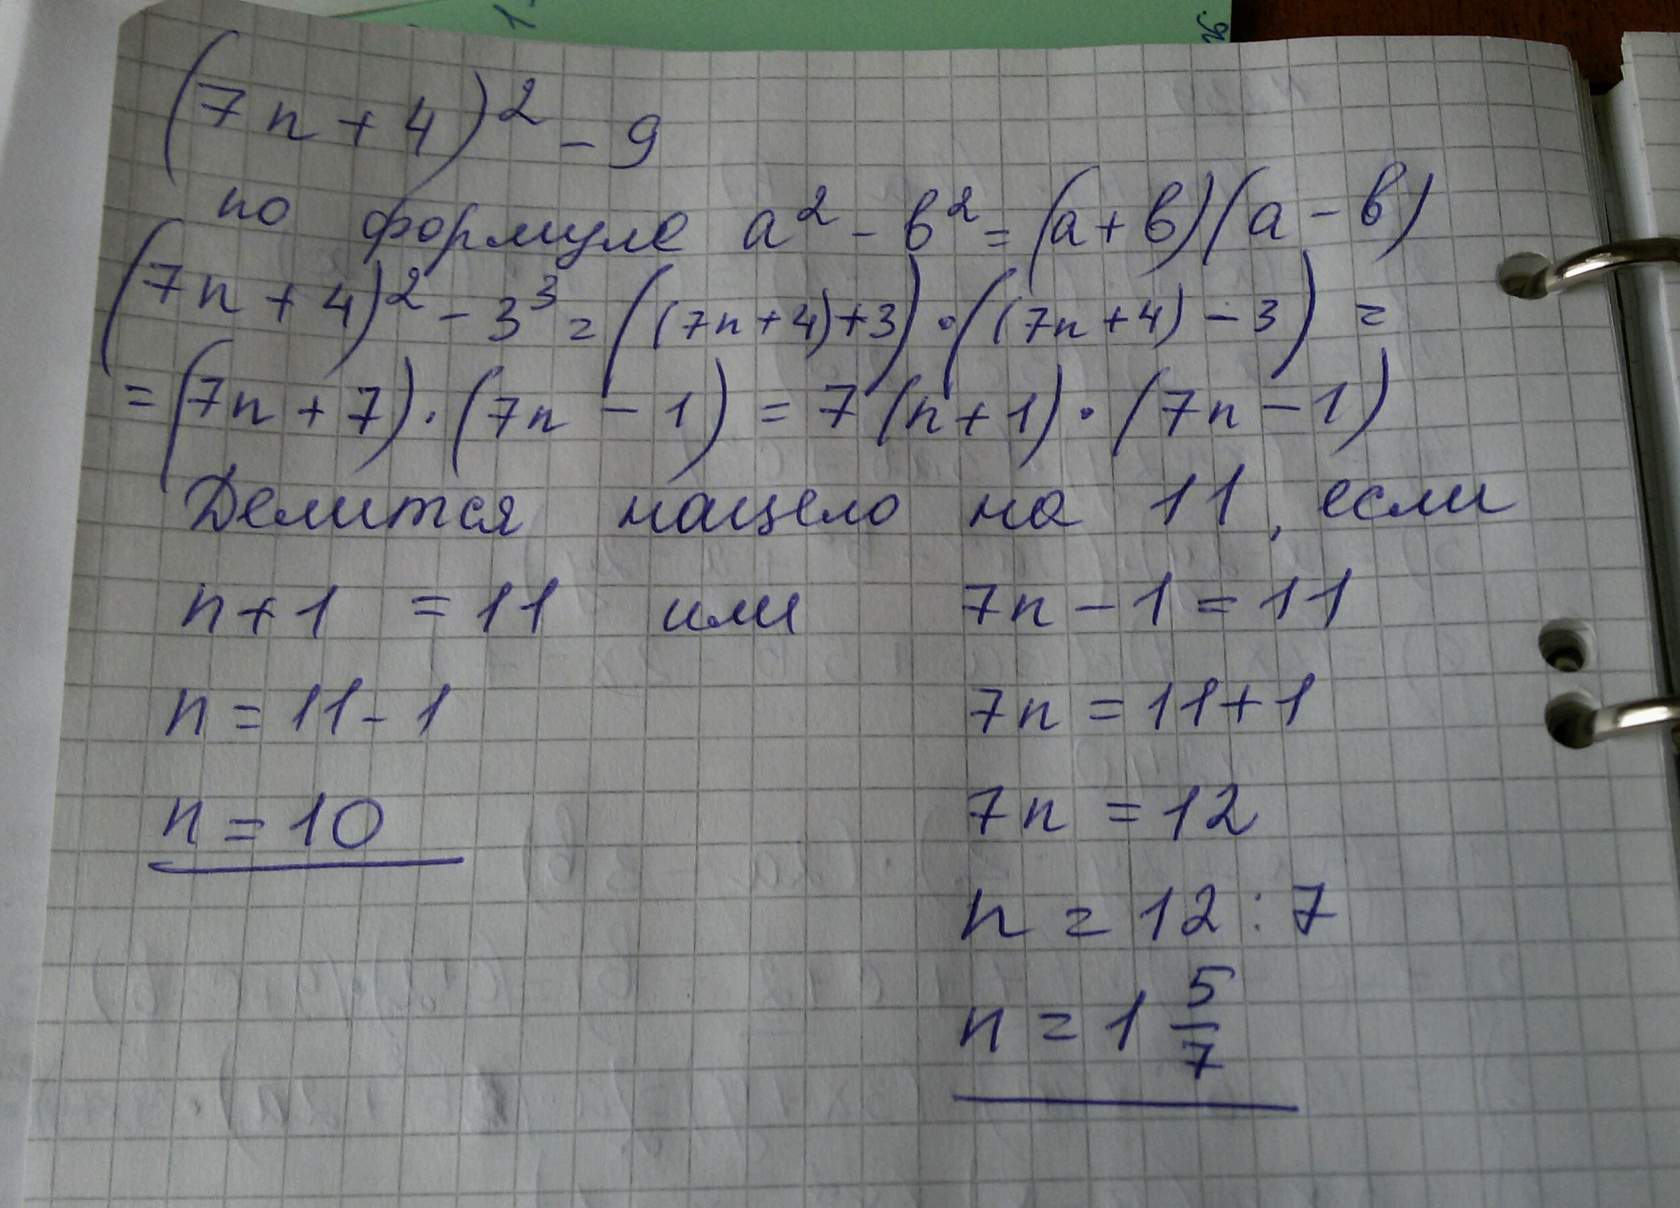 (7n+4)² - 9
по формуле a² - b² = (a+b)(a-b)
(7n+4)² - 3³ = ((7n+4)+3)·((7n+4)-3) =
= (7n+7)·(7n-1) = 7(n+1)·(7n-1)
Делится нацело на 11, если
n+1 = 11 или 7n-1=11
n=11-1 7n=11+1
n=10 7n=12
n=12:7
n=1 5/7